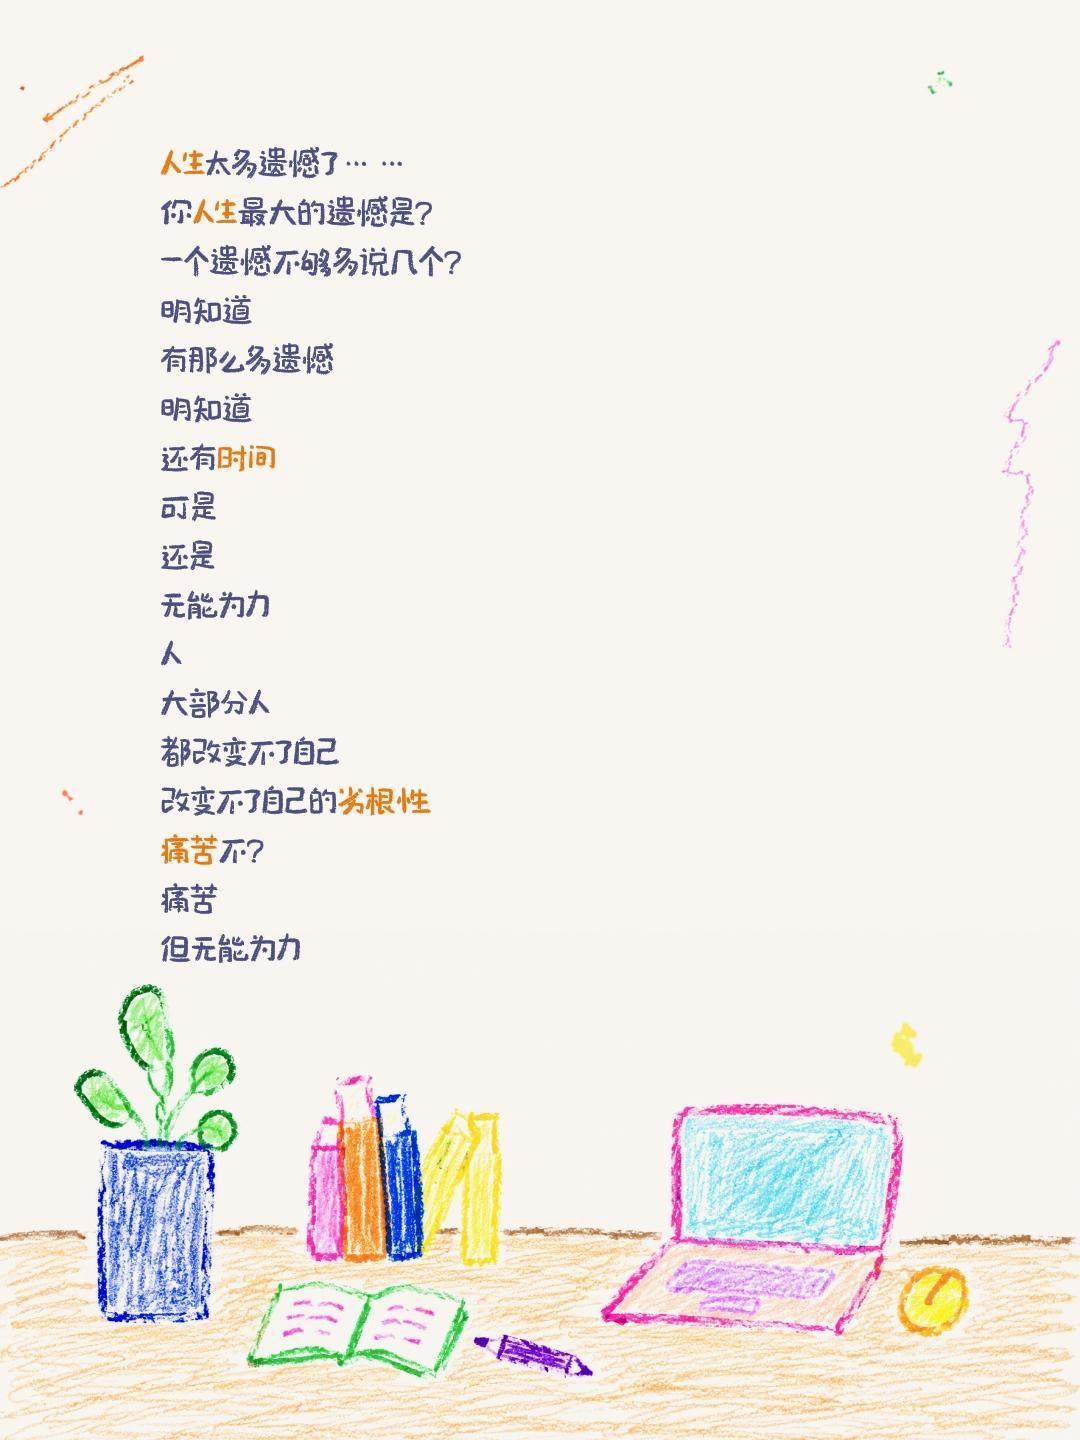 人生太多遗憾了… …
你人生最大的遗憾是？
一个遗憾不够多说几个？
明知道
有那么多遗憾
明知道
还有时间
可是
还是
无能为力
人
大部分人
都改变不了自己
改变不了自己的劣根性
痛苦不？
痛苦
但无能为力